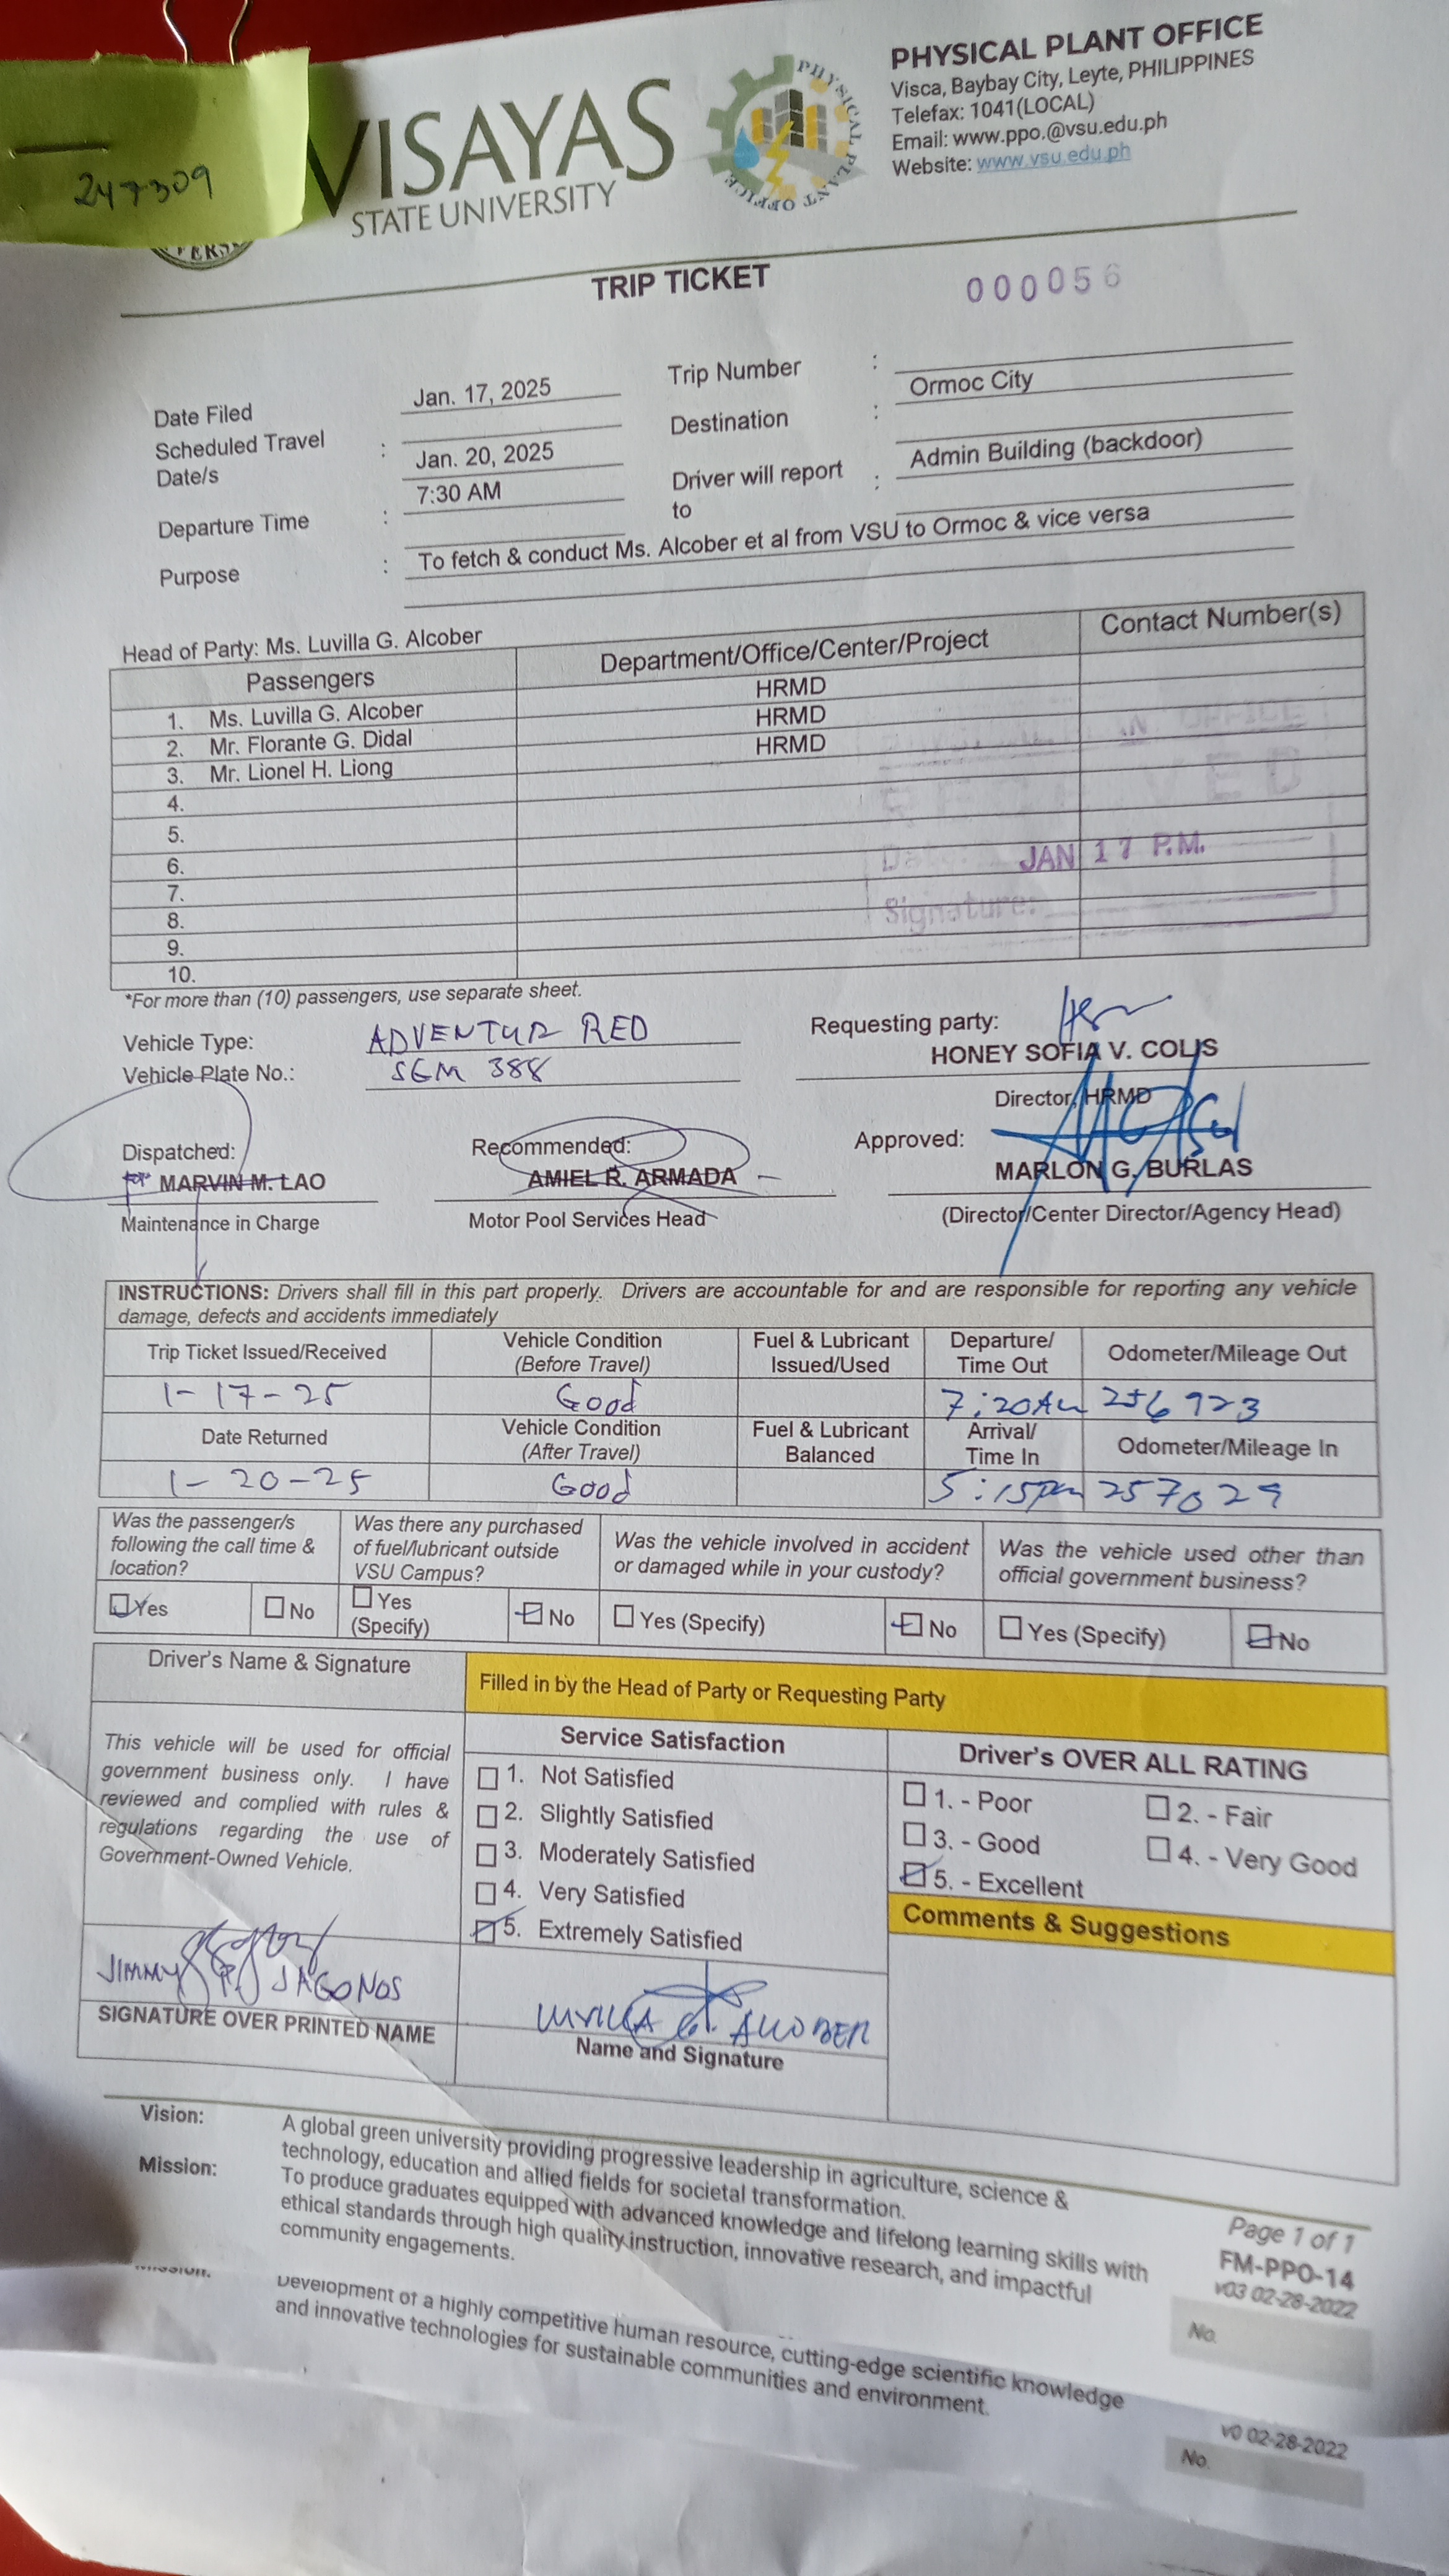 247309
VISAYAS
STATE UNIVERSITY
PHYSICAL PLANT OFFICE
PHYSICAL PLANT OFFICE
Visca, Baybay City, Leyte, PHILIPPINES
Telefax: 1041(LOCAL)
Email: www.ppo.@vsu.edu.ph
Website: www.vsu.edu.ph
TRIP TICKET
000056
Date Filed Jan. 17, 2025
Trip Number :
Scheduled Travel Date/s : Jan. 20, 2025
Destination : Ormoc City
Departure Time : 7:30 AM
Driver will report to : Admin Building (backdoor)
Purpose : To fetch & conduct Ms. Alcober et al from VSU to Ormoc & vice versa
Head of Party: Ms. Luvilla G. Alcober
Passengers Department/Office/Center/Project Contact Number(s)
1. Ms. Luvilla G. Alcober HRMD
2. Mr. Florante G. Didal HRMD
3. Mr. Lionel H. Liong HRMD
4.
5.
6.
7.
8.
9.
10.
OFFICE
RECEIVED
Date: JAN 17 P.M.
Signature:
*For more than (10) passengers, use separate sheet.
Vehicle Type: ADVENTUR RED
Vehicle Plate No.: SGM 388
Requesting party:
HONEY SOFIA V. COLIS
Director, HRMD
Dispatched:
for MARVIN M. LAO
Maintenance in Charge
Recommended:
AMIEL R. ARMADA
Motor Pool Services Head
Approved:
MARLON G. BURLAS
(Director/Center Director/Agency Head)
INSTRUCTIONS: Drivers shall fill in this part properly. Drivers are accountable for and are responsible for reporting any vehicle
damage, defects and accidents immediately
Trip Ticket Issued/Received Vehicle Condition (Before Travel) Fuel & Lubricant Issued/Used Departure/ Time Out Odometer/Mileage Out
1-17-25 Good 7:20AM 256923
Date Returned Vehicle Condition (After Travel) Fuel & Lubricant Balanced Arrival/ Time In Odometer/Mileage In
1-20-25 Good 5:15pm 257029
Was the passenger/s following the call time & location?
Yes No
Was there any purchased of fuel/lubricant outside VSU Campus?
Yes (Specify) No
Was the vehicle involved in accident or damaged while in your custody?
Yes (Specify) No
Was the vehicle used other than official government business?
Yes (Specify) No
Driver's Name & Signature
This vehicle will be used for official
government business only. I have
reviewed and complied with rules &
regulations regarding the use of
Government-Owned Vehicle.
JIMMY P. JAGONOS
SIGNATURE OVER PRINTED NAME
Filled in by the Head of Party or Requesting Party
Service Satisfaction
1. Not Satisfied
2. Slightly Satisfied
3. Moderately Satisfied
4. Very Satisfied
5. Extremely Satisfied
LUVILLA G. ALCOBER
Name and Signature
Driver's OVER ALL RATING
1. - Poor 2. - Fair
3. - Good 4. - Very Good
5. - Excellent
Comments & Suggestions
Vision: A global green university providing progressive leadership in agriculture, science &
technology, education and allied fields for societal transformation.
Mission: To produce graduates equipped with advanced knowledge and lifelong learning skills with
ethical standards through high quality instruction, innovative research, and impactful
community engagements.
Page 1 of 1
FM-PPO-14
v03 02-28-2022
No.
Mission: Development of a highly competitive human resource, cutting-edge scientific knowledge
and innovative technologies for sustainable communities and environment.
v0 02-28-2022
No.